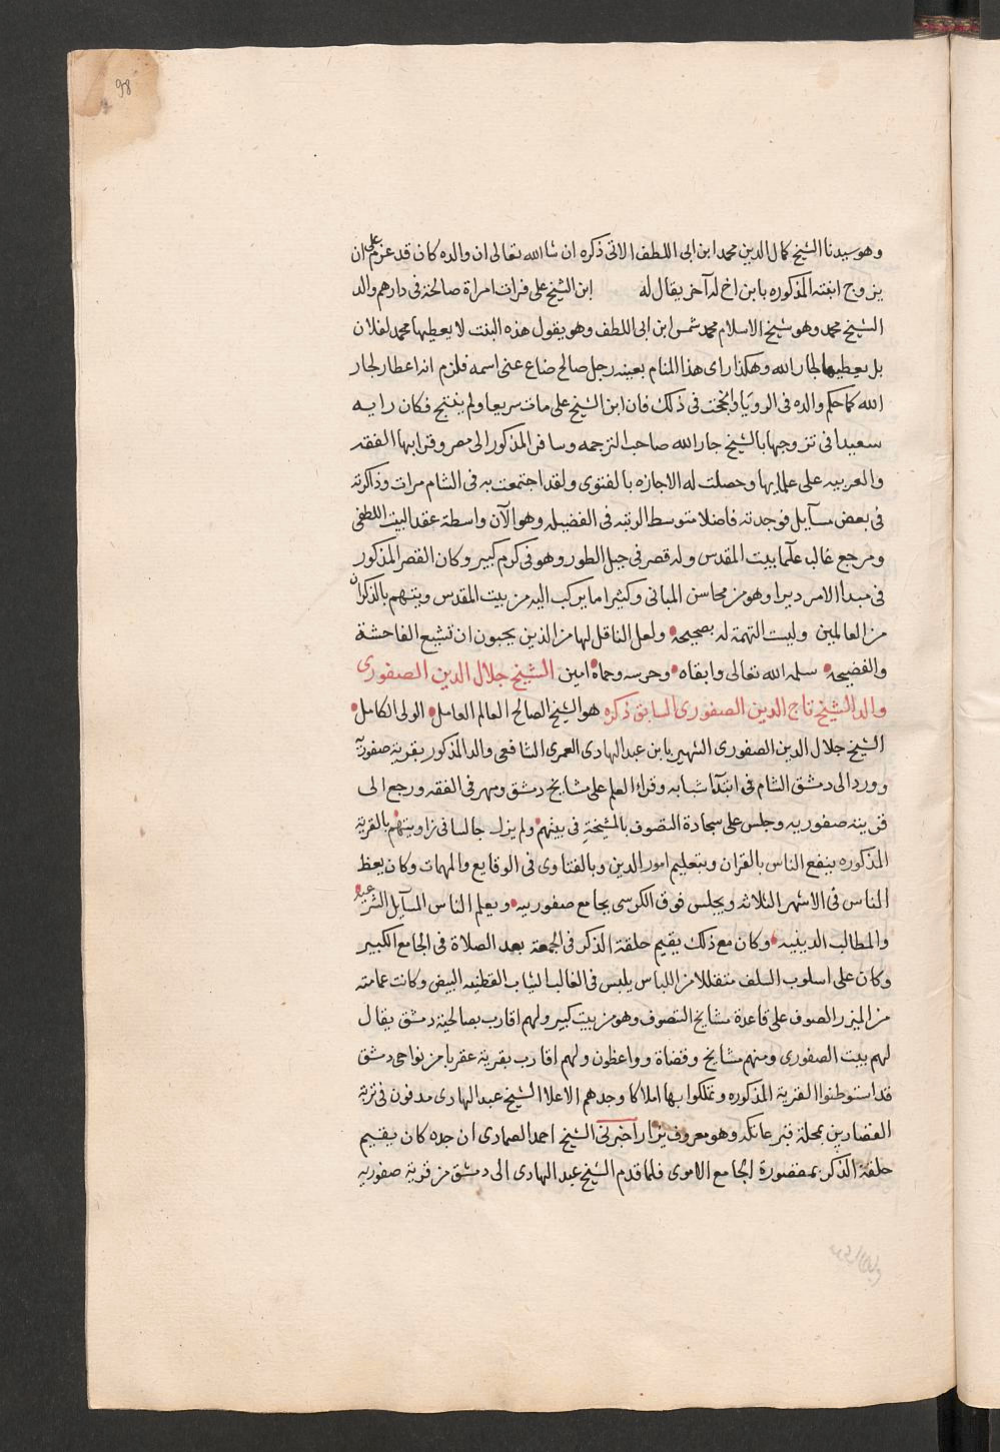 98
وهو سيدنا الشيخ كمال الدين محمد ابن ابى اللطف الاتى ذكره ان شا الله تعالى ان والده كان قد عزم على ان
يزوج ابنته المذكوره بابن اخ له آخر يقال له ابن الشيخ على فرات امراة صالحة فى دارهم والد
الشيخ محمد وهو شيخ الاسلام محمد شمس ابن ابى اللطف وهو يقول هذه البنت لا يعطيها محمد لفلان
بل يعطيها لجار الله وهكذا راى هذا المنام بعينه رجل صالح ضاع عنى اسمه فلزم انه اعطا لجار
الله كما حكم والده فى الرويا وانجحت فى ذلك فان ابن الشيخ على مات سريعا ولم ينتج فكان رايه
سعيدا فى تزوجها بالشيخ جار الله صاحب الترجمه وسافر المذكور الى مصر وقرا بها الفقه
والعربيه على علمايها وحصلت له الاجازه بالفتوى ولقد اجتمعت به فى الشام مرات وذاكرته
فى بعض مسآيل فوجدته فاضلا متوسط الرتبه فى الفضيله وهو الآن واسطة عقد البيت اللطفى
ومرجع غالب علما بيت المقدس وله قصر فى جبل الطور وهو فى كرم كبير وكان القصر المذكور
فى مبدا الامر ديرا وهو من محاسن المبانى وكثيرا ما يركب اليه من بيت المقدس ويتهم بالذكران
من العالمين وليست التهمة له بصحيحة ولعل الناقل لها من الذين يحبون ان تشيع الفاحشة
والفضيحه سلمه الله تعالى وابقاه وحرسه وحماه امين الشيخ جلال الدين الصفورى
والد الشيخ تاج الدين الصفورى السابق ذكره هو الشيخ الصالح العالم العامل الولى الكامل
الشيخ جلال الدين الصفورى الشهير بابن عبد الهادى العمرى الشافعى والد المذكور بقرية صفورية
وورد الى دمشق الشام فى ابتدآ شبابه وقراء العلم على مشايخ دمشق ومهر فى الفقه ورجع الى
قريته صفوريه وجلس على سجادة التصوف بالمشيخة فى بيتهم ولم يزل جالسا فى زاويتهم بالقرية
المذكوره ينفع الناس بالقران وبتعليم امور الدين وبالفتاوى فى الوقايع والمهمات وكان يعظ
الناس فى الاشهر الثلاثه ويجلس فوق الكرسى بجامع صفوريه ويعلم الناس المسآيل الشرعيه
والمطالب الدينيه وكان مع ذلك يقيم حلقة الذكر فى الجمعة بعد الصلاة فى الجامع الكبير
وكان على اسلوب السلف متقللا من اللباس يلبس فى الغالب الثياب القطنيه البيض وكانت عمامته
من الميزر الصوف على قاعدة مشايخ التصوف وهو من بيت كبير ولهم اقارب بصالحية دمشق يقال
لهم بيت الصفورى ومنهم مشايخ وقضاة وواعظون ولهم اقارب بقرية عقربا من نواحى دمشق
قد استوطنوا القرية المذكوره وتملكوا بها املاكا وجدهم الاعلا الشيخ عبد الهادى مدفون فى تربة
الغضارين بمحلة قبر عاتكه وهو معروف يزار اخبرنى الشيخ احمد العمادى ان جده كان يقيم
حلقة الذكر بمقصورة الجامع الاموى فلما قدم الشيخ عبد الهادى الى دمشق من قرية صفوريه